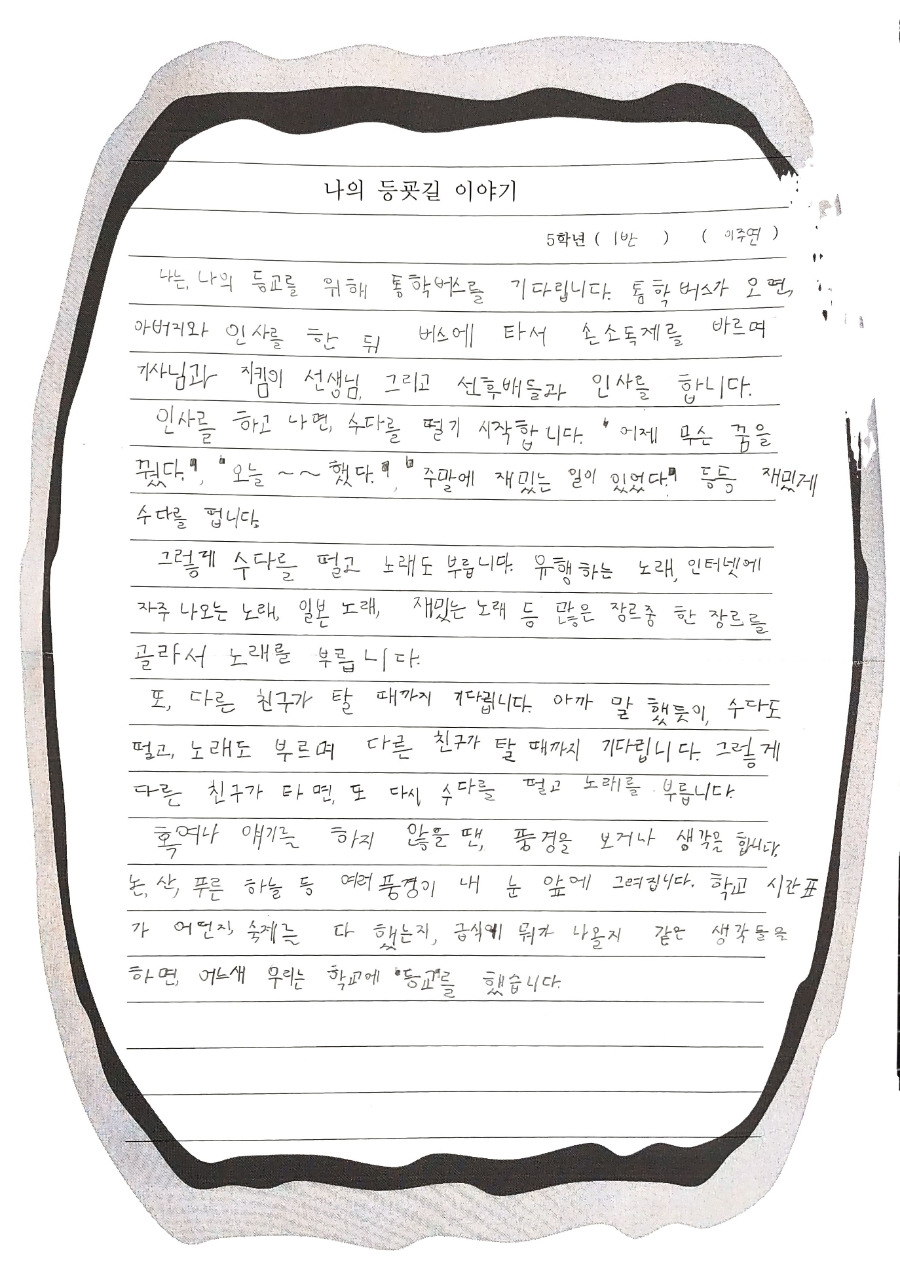 나의 등굣길 이야기
5학년 ( 1반 ) ( 이주연 )
나는, 나의 등교를 위해 통학버스를 기다립니다. 통학 버스가 오면,
아버지와 인사를 한 뒤 버스에 타서 손소독제를 바르며
기사님과 지킴이 선생님, 그리고 선후배들과 인사를 합니다.
인사를 하고 나면, 수다를 떨기 시작합니다. "어제 무슨 꿈을
꿨다.", "오늘 ~~했다.", "주말에 재밌는 일이 있었다." 등등 재밌게
수다를 떱니다.
그렇게 수다를 떨고 노래도 부릅니다. 유행하는 노래, 인터넷에
자주 나오는 노래, 일본 노래, 재밌는 노래 등 많은 장르중 한 장르를
골라서 노래를 부릅니다.
또, 다른 친구가 탈 때까지 기다립니다. 아까 말했듯이, 수다도
떨고, 노래도 부르며 다른 친구가 탈 때까지 기다립니다. 그렇게
다른 친구가 타면, 또 다시 수다를 떨고 노래를 부릅니다.
혹여나 얘기를 하지 않을 땐, 풍경을 보거나 생각을 합니다.
논, 산, 푸른 하늘 등 여러 풍경이 내 눈 앞에 그려집니다. 학교 시간표
가 어떤지, 숙제를 다 했는지, 급식에 뭐가 나올지 같은 생각들을
하면, 어느새 우리는 학교에 "등교"를 했습니다.